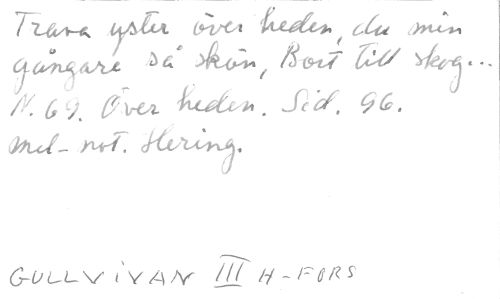 Trava yster över heden, du min
gångare så skön, Bort till skog...
N. 69. Över heden. Sid. 96.
mel-not. Hering.
GULLVIVAN III H-FORS